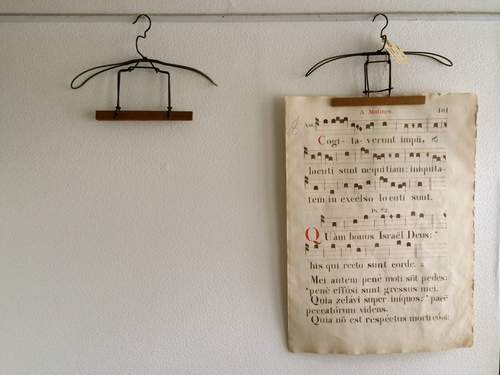 A Matines.
101
Ant.
Cogi- ta- verunt impii, &
locuti sunt nequitiam: iniquita-
tem in excelso locuti sunt.
Ps. 72.
QUàm bonus Israël Deus: *
his qui recto sunt corde.
Mei autem penè moti sūt pedes:
* penè effúsi sunt gressus mei.
Quia zelávi super iníquos: * pacē
peccatórum videns.
Quia nō est respéctus morti